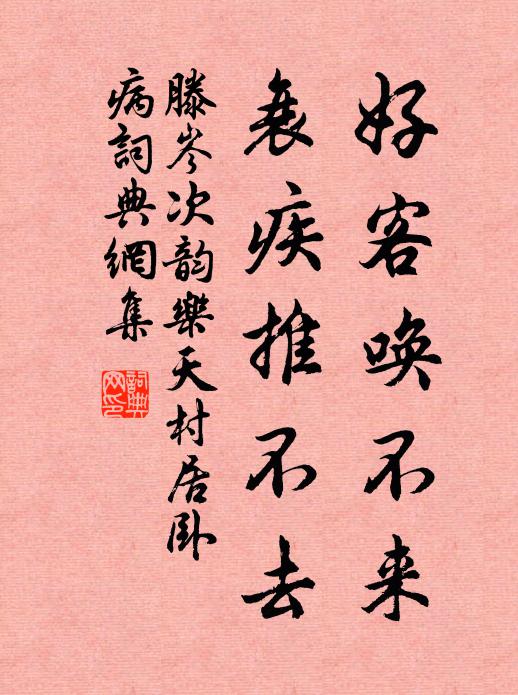 好客唤不来
衰疾推不去
滕岑次韵樂天村居卧
病詞典網集
詞典
网印